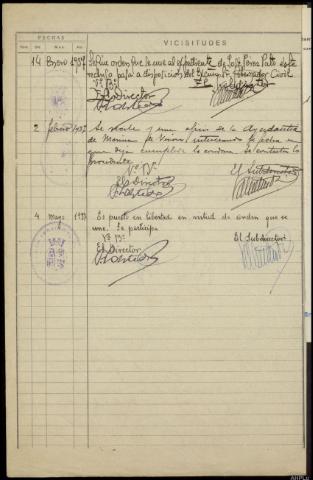 FECHAS
VICISITUDES
14 Enero 1937 Según orden que se une al expediente de José Perez Patto este
recluso pasa a disposicion del Excmo Sr. Gobernador Civil
Vº Bº
El Director
El Subdirector
2 febrero 1937 Se recibe y une oficio de la Ayudantia
de Marina de Vivero interesando la fecha en
que deja cumplida la condena. Se contesta la
procedente
Vº Bº
El Director
El Subdirector
4 mayo 1937 Es puesto en libertad en virtud de orden que se
une. Se participa
Vº Bº
El Director
El Subdirector